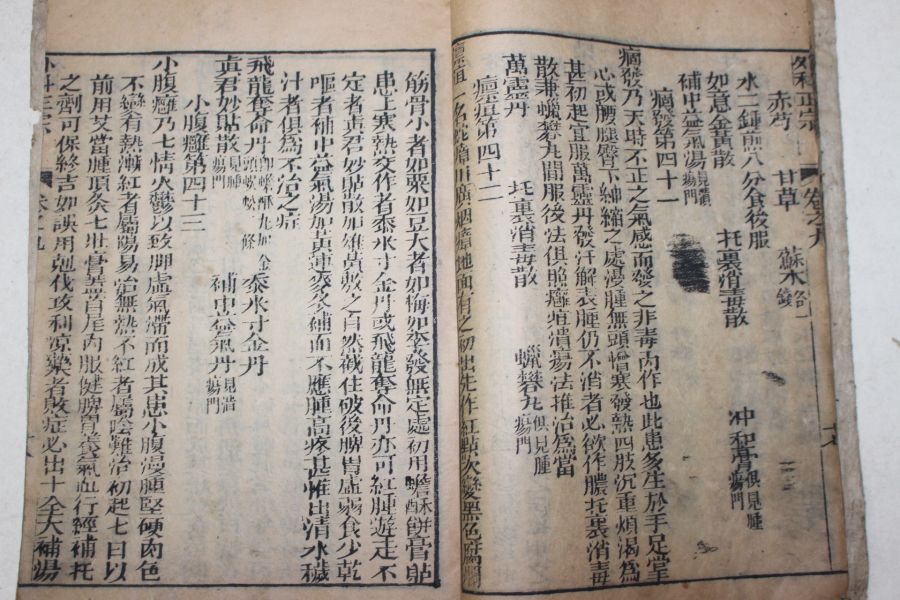 外科正宗 卷之九
赤芍 甘草 蘇木 各一錢
水二鍾煎八分食後服
如意金黃散 托裏消毒散 沖和膏 俱見腫瘍門
補中益氣湯 見潰瘍門
瘸發第四十一
瘸發乃天時不正之氣感而發之非毒內作也此患多生於手足掌
心或腰腿臀下紳縮之處漫腫無頭憎寒發熱四肢沉重煩渴為
甚初起宜服萬靈丹發汗解表腫仍不消者必欲作膿托裏消毒
散兼蠟礬丸間服後法俱照癰疽潰瘍法推治為當
萬靈丹 托裏消毒散 蠟礬丸 俱見腫瘍門
瘟疽第四十二
一名 川廣烟瘴地面有之初出先作紅點次變黑色
筋骨小者如粟如豆大者如梅如李發無定處初用蟾酥餅膏貼
患上寒熱交作者黍米寸金丹或飛龍奪命丹亦可紅腫遊走不
定者真君妙貼散加雄黃敷之自然截住破後脾胃虛弱食少乾
嘔者補中益氣湯加黃連麥冬補而不應腫高疼甚惟出清水穢
汁者俱為不治之症
飛龍奪命丹 即蟾酥丸加金頭蜈蚣一條 黍米寸金丹
真君妙貼散 見腫瘍門 補中益氣丹 見潰瘍門
小腹癰第四十三
小腹癰乃七情火鬱以致脾虛氣滯而成其患小腹漫腫堅硬肉色
不變有熱漸紅者屬陽易治無熱不紅者屬陰難治初起七日以
前用艾當腫頂灸七壯膏蓋首尾內服健脾胃養氣血行經補托
之劑可保終吉如誤用剋伐攻利涼藥者敗症必出十全大補湯
外科正宗 卷之九